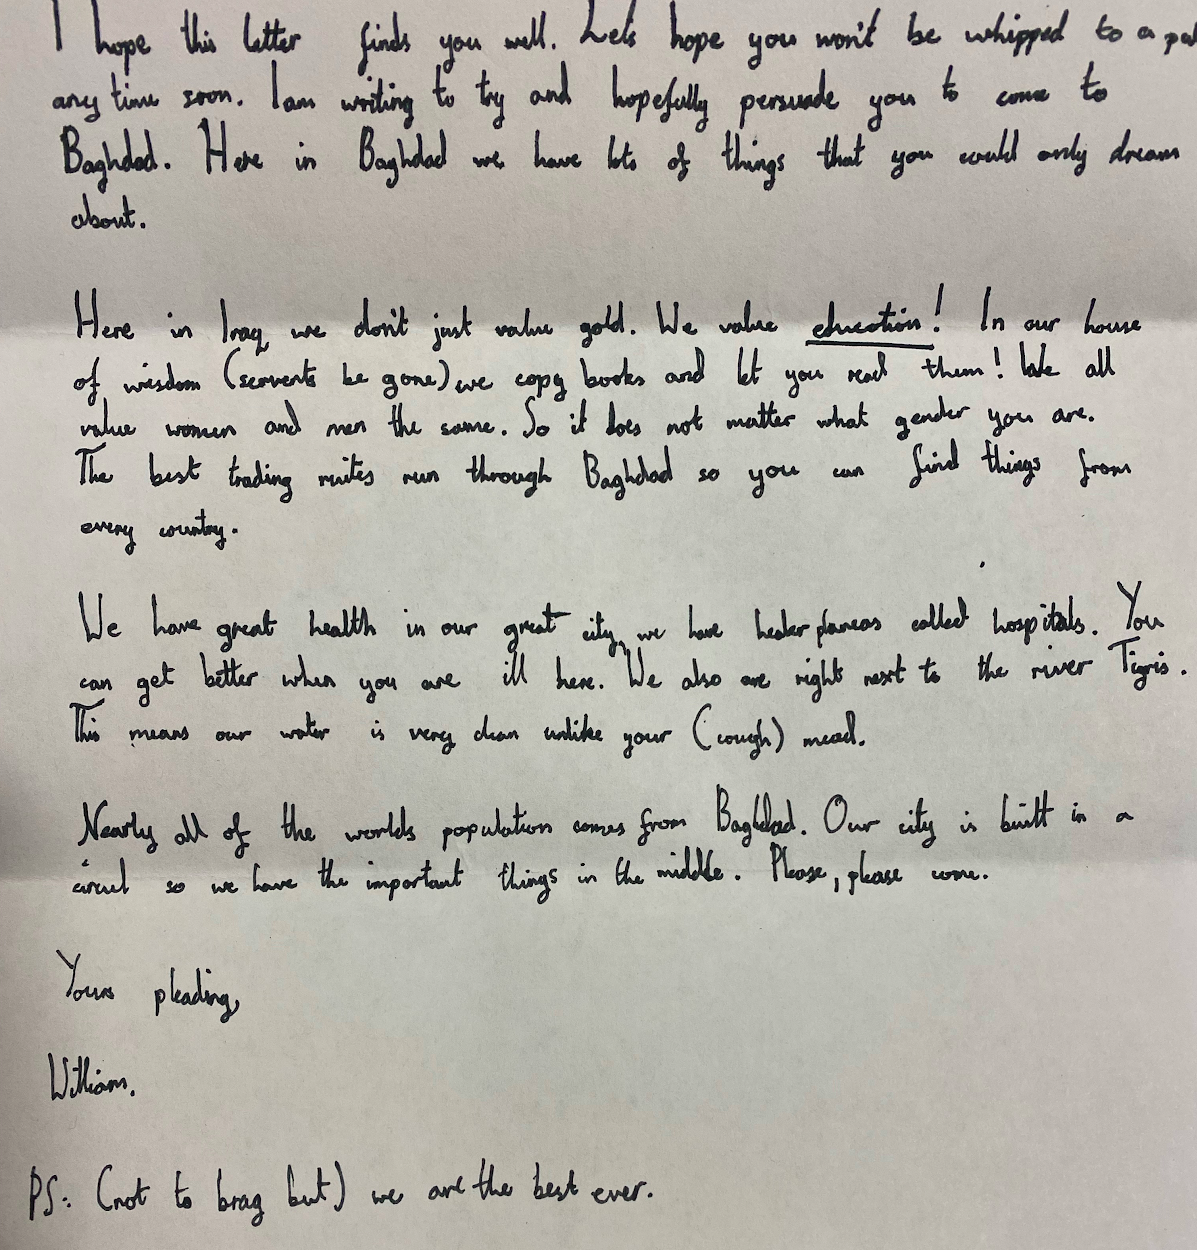 I hope this letter finds you well. Let's hope you won't be whipped to a
any time soon. I am writing to try and hopefully persuade you to come to
Baghdad. Here in Baghdad we have lots of things that you could only dream
about.
Here in Iraq we don't just value gold. We value education! In our house
of wisdom (servents be gone) we copy books and let you read them! We all
value women and men the same. So it does not matter what gender you are.
The best trading routes run through Baghdad so you can find things from
every country.
We have great health in our great city, we have healer called hospitals. You
can get better when you are ill here. We also are right next to the river Tigris.
This means our water is very clean unlike your (cough) mead.
Nearly all of the worlds population comes from Baghdad. Our city is built in a
circul so we have the important things in the middle. Please, please come.
Yours pleading,
William.
PS: (not to brag but) we are the best ever.